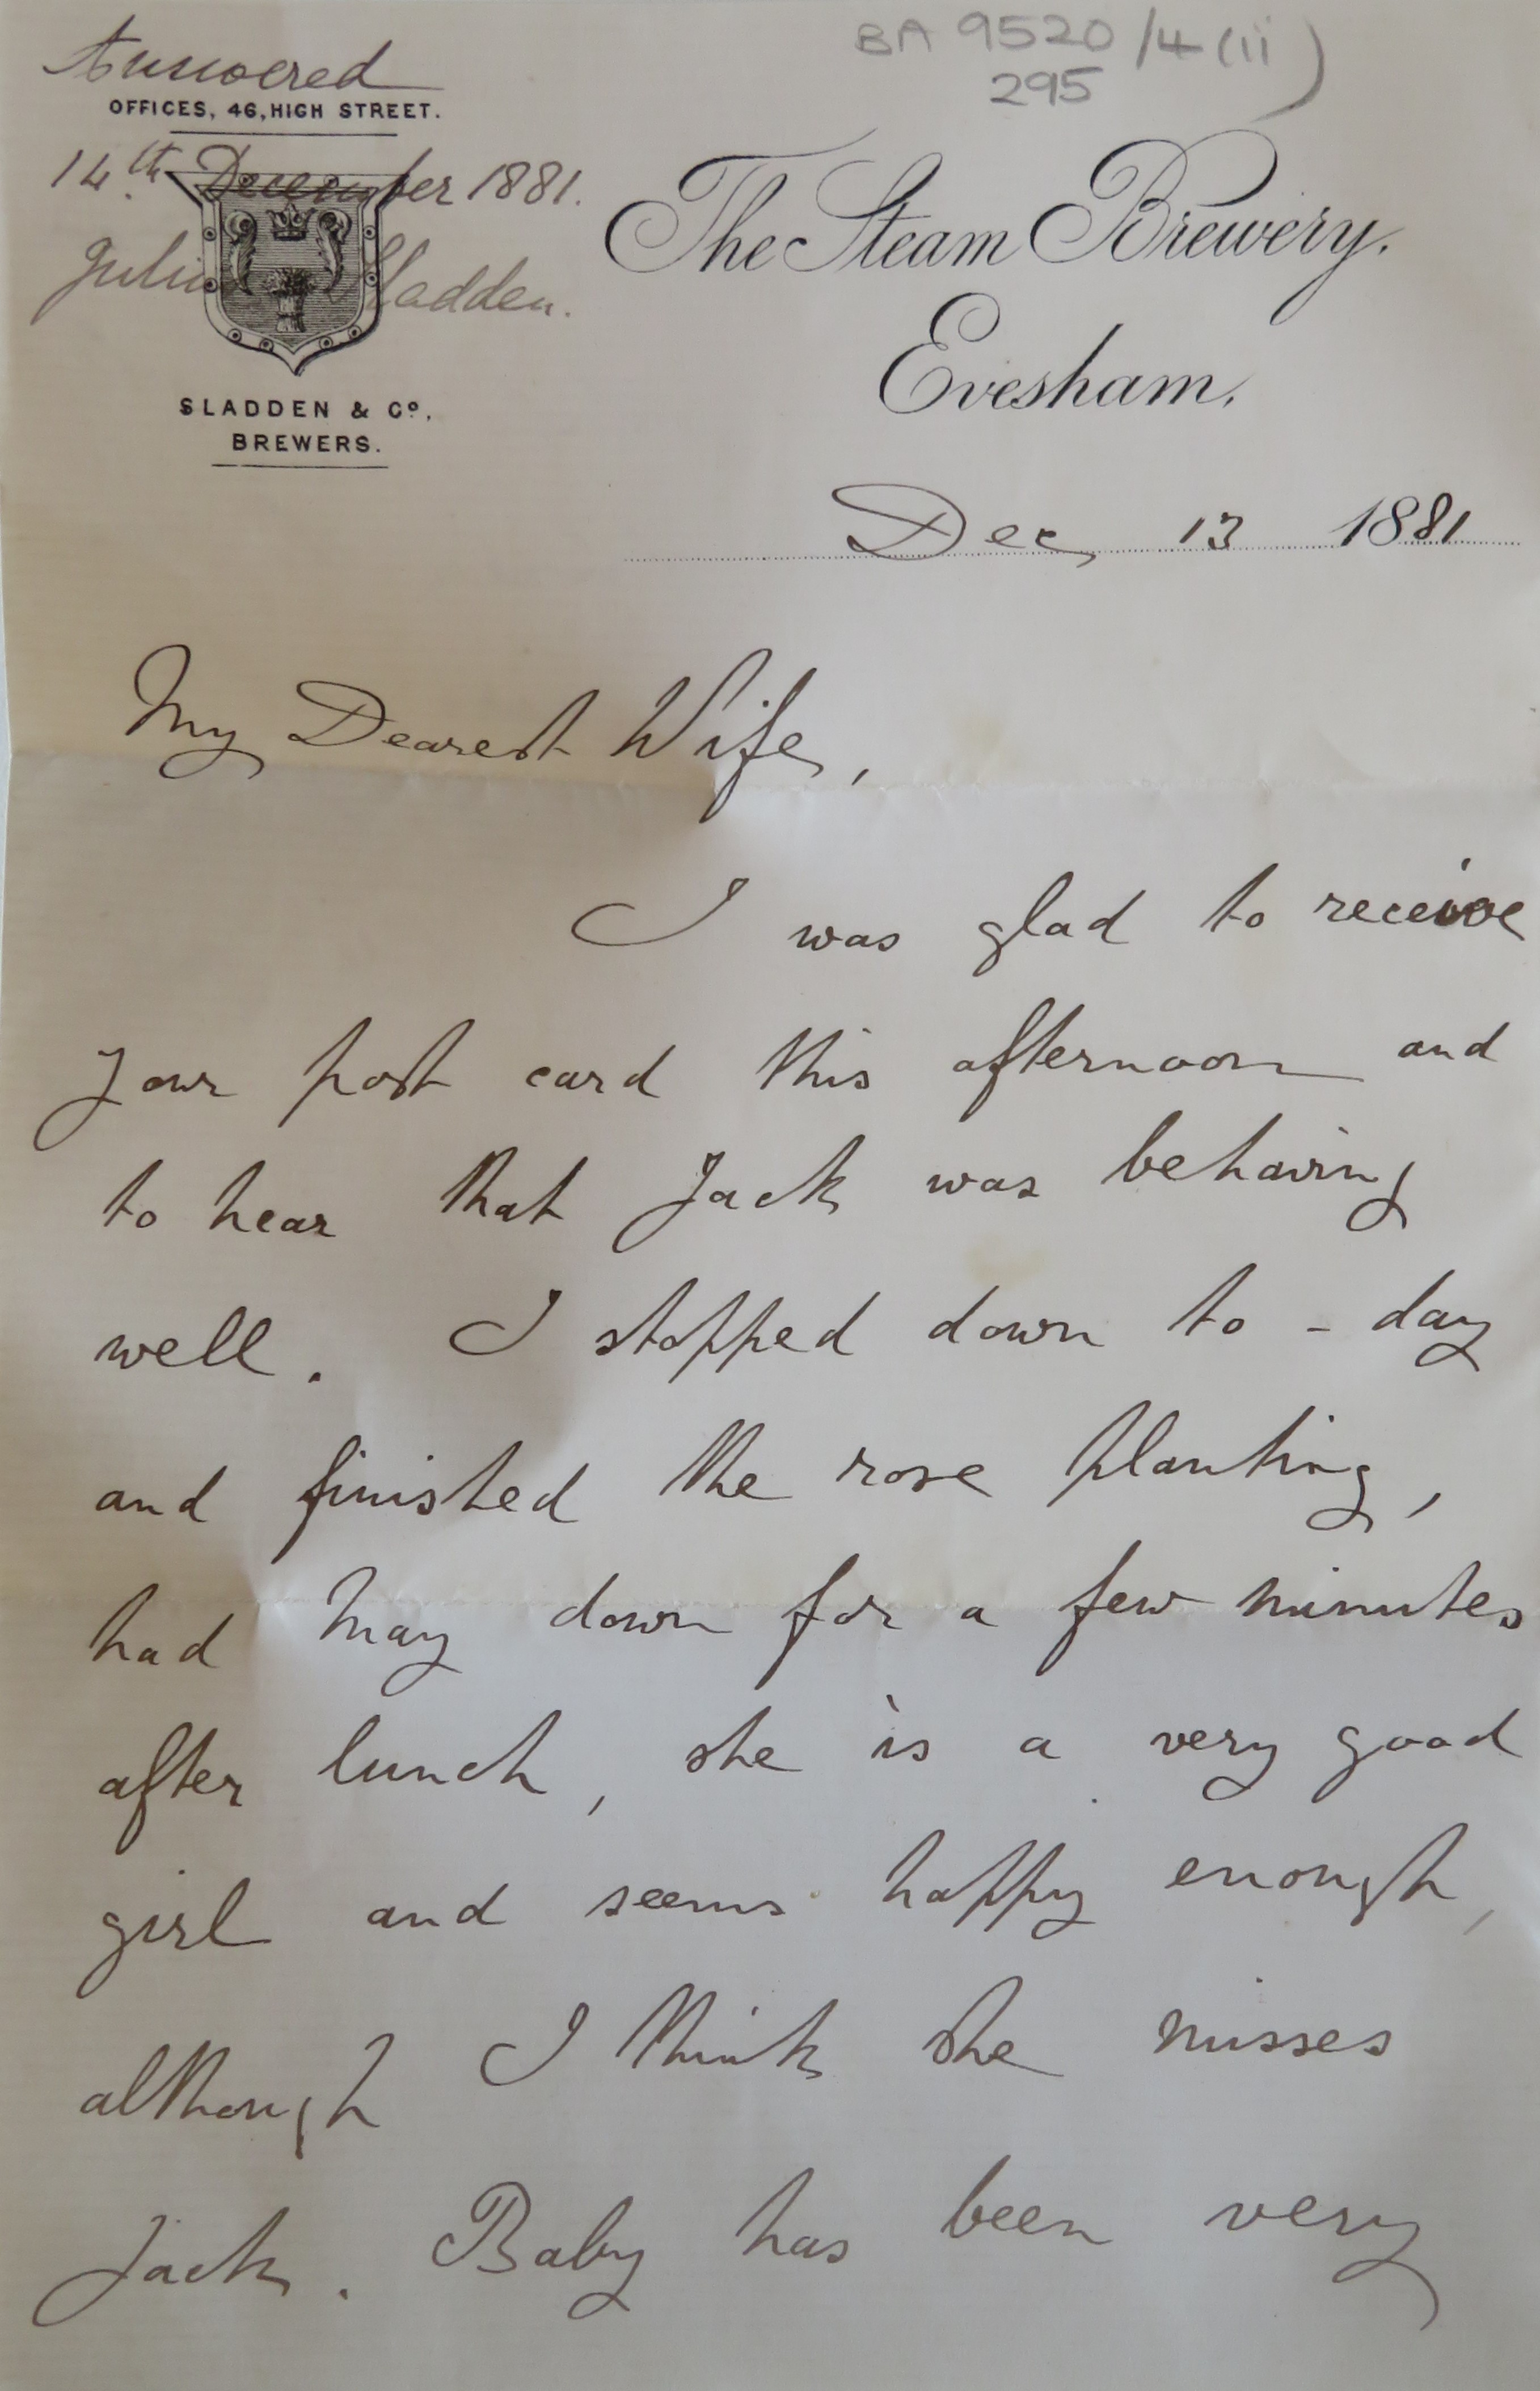 Answered
BA 9520/4(ii)
295
OFFICES, 46, HIGH STREET.
14th December 1881.
Julius Sladden.
The Steam Brewery.
Evesham.
SLADDEN & Co.
BREWERS.
Dec 13 1881
My Dearest Wife,
I was glad to receive
your post card this afternoon and
to hear that Jack was behaving
well. I stopped down to-day
and finished the rose planting,
had May down for a few minutes
after lunch, she is a very good
girl and seems happy enough,
although I think she misses
Jack. Baby has been very